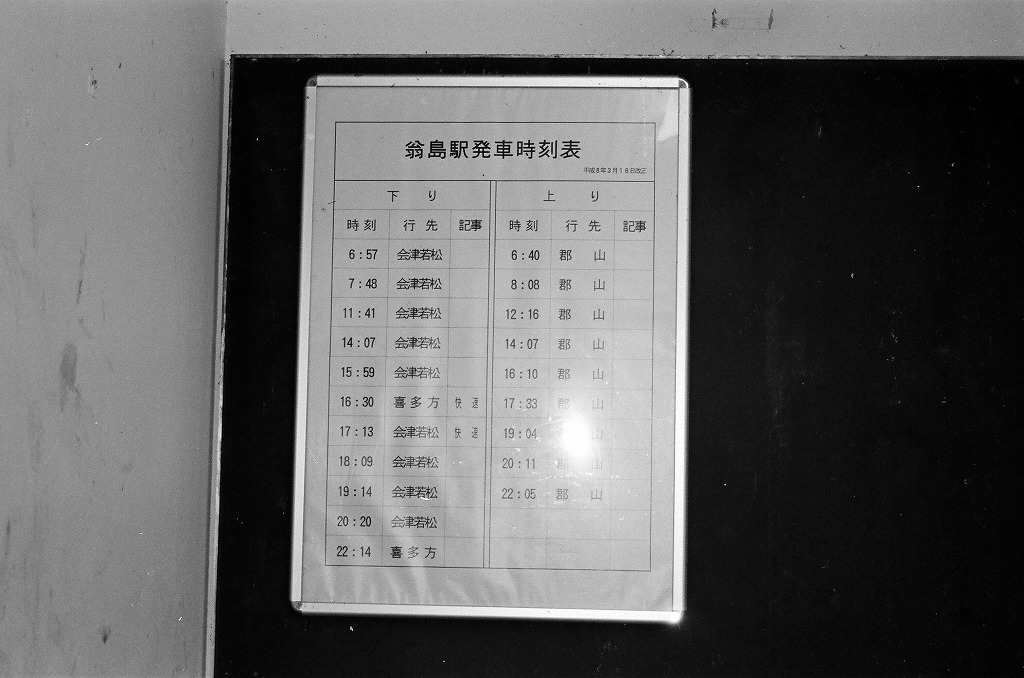 翁島駅発車時刻表
平成8年3月16日改正
下り 上り
時刻 行先 記事 時刻 行先 記事
6:57 会津若松 6:40 郡山
7:48 会津若松 8:08 郡山
11:41 会津若松 12:16 郡山
14:07 会津若松 14:07 郡山
15:59 会津若松 16:10 郡山
16:30 喜多方 快速 17:33 郡山
17:13 会津若松 快速 19:04 山
18:09 会津若松 20:11 郡山
19:14 会津若松 22:05 郡山
20:20 会津若松
22:14 喜多方